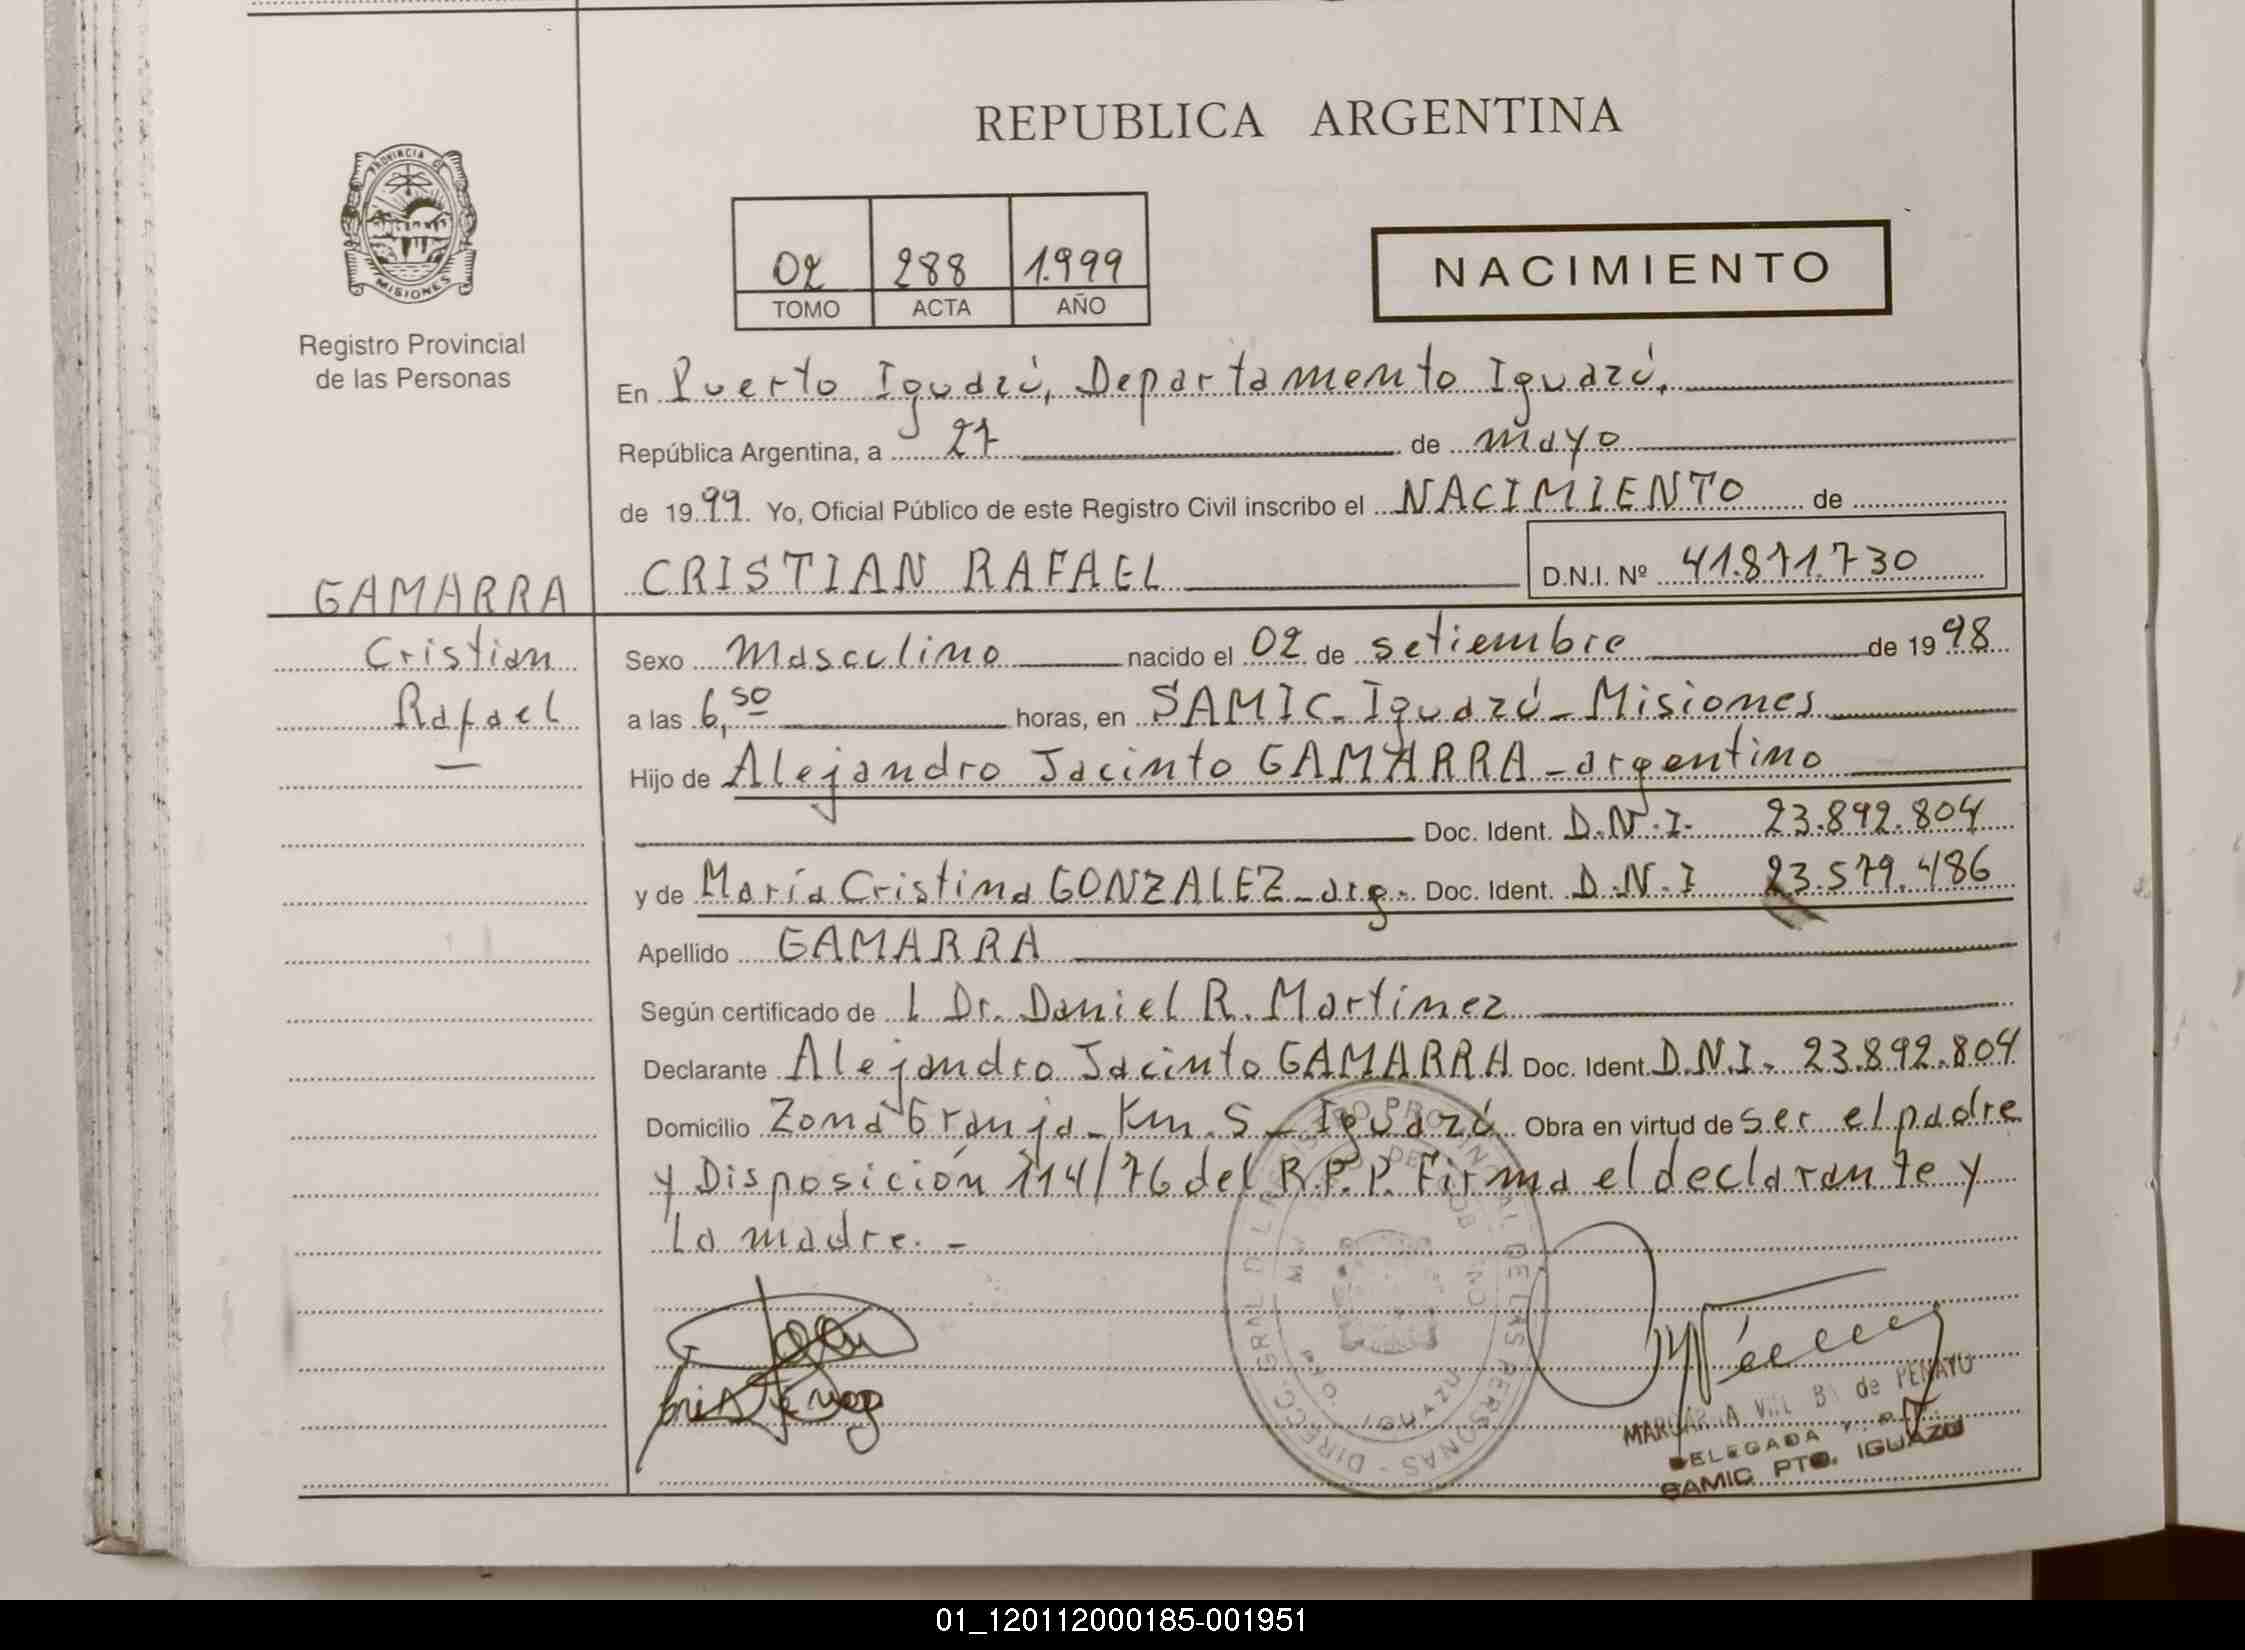 REPUBLICA ARGENTINA
PROVINCIA DE
MISIONES
Registro Provincial
de las Personas
02 288 1.999
TOMO ACTA AÑO
NACIMIENTO
En Puerto Iguazú, Departamento Iguazú,
República Argentina, a 27 de mayo
de 1999. Yo, Oficial Público de este Registro Civil inscribo el NACIMIENTO de
GAMARRA CRISTIAN RAFAEL D.N.I. Nº 41.871.730
Cristian
Rafael
Sexo Masculino nacido el 02 de setiembre de 1998
a las 6,50 horas, en SAMIC - Iguazú - Misiones
Hijo de Alejandro Jacinto GAMARRA - argentino
Doc. Ident. D.N.I. 23.892.804
y de María Cristina GONZALEZ - arg. Doc. Ident. D.N.I 23.579.486
Apellido GAMARRA
Según certificado de l Dr. Daniel R. Martínez
Declarante Alejandro Jacinto GAMARRA Doc. Ident. D.N.I. 23.892.804
Domicilio Zona Granja - Km. 5 - Iguazú Obra en virtud de ser el padre
y Disposición 114/76 del R.P.P. Firma el declarante y
la madre. -
DIRECC. GRAL. DEL REGISTRO PROVINCIAL DE LAS PERSONAS
IGUAZU
de PENAYO
DELEGADA
SAMIC PTO. IGUAZU
01_120112000185-001951